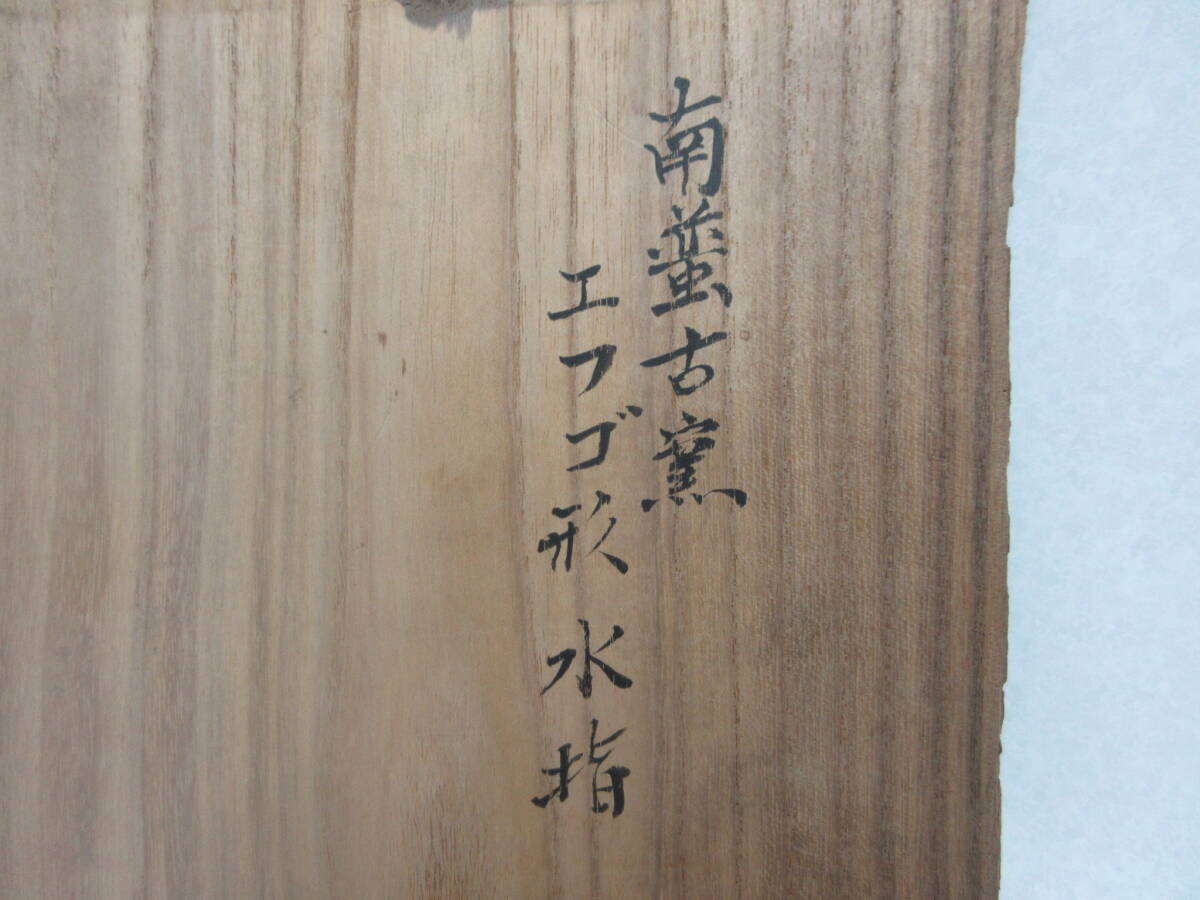 南蛮古窯
エフゴ形水指